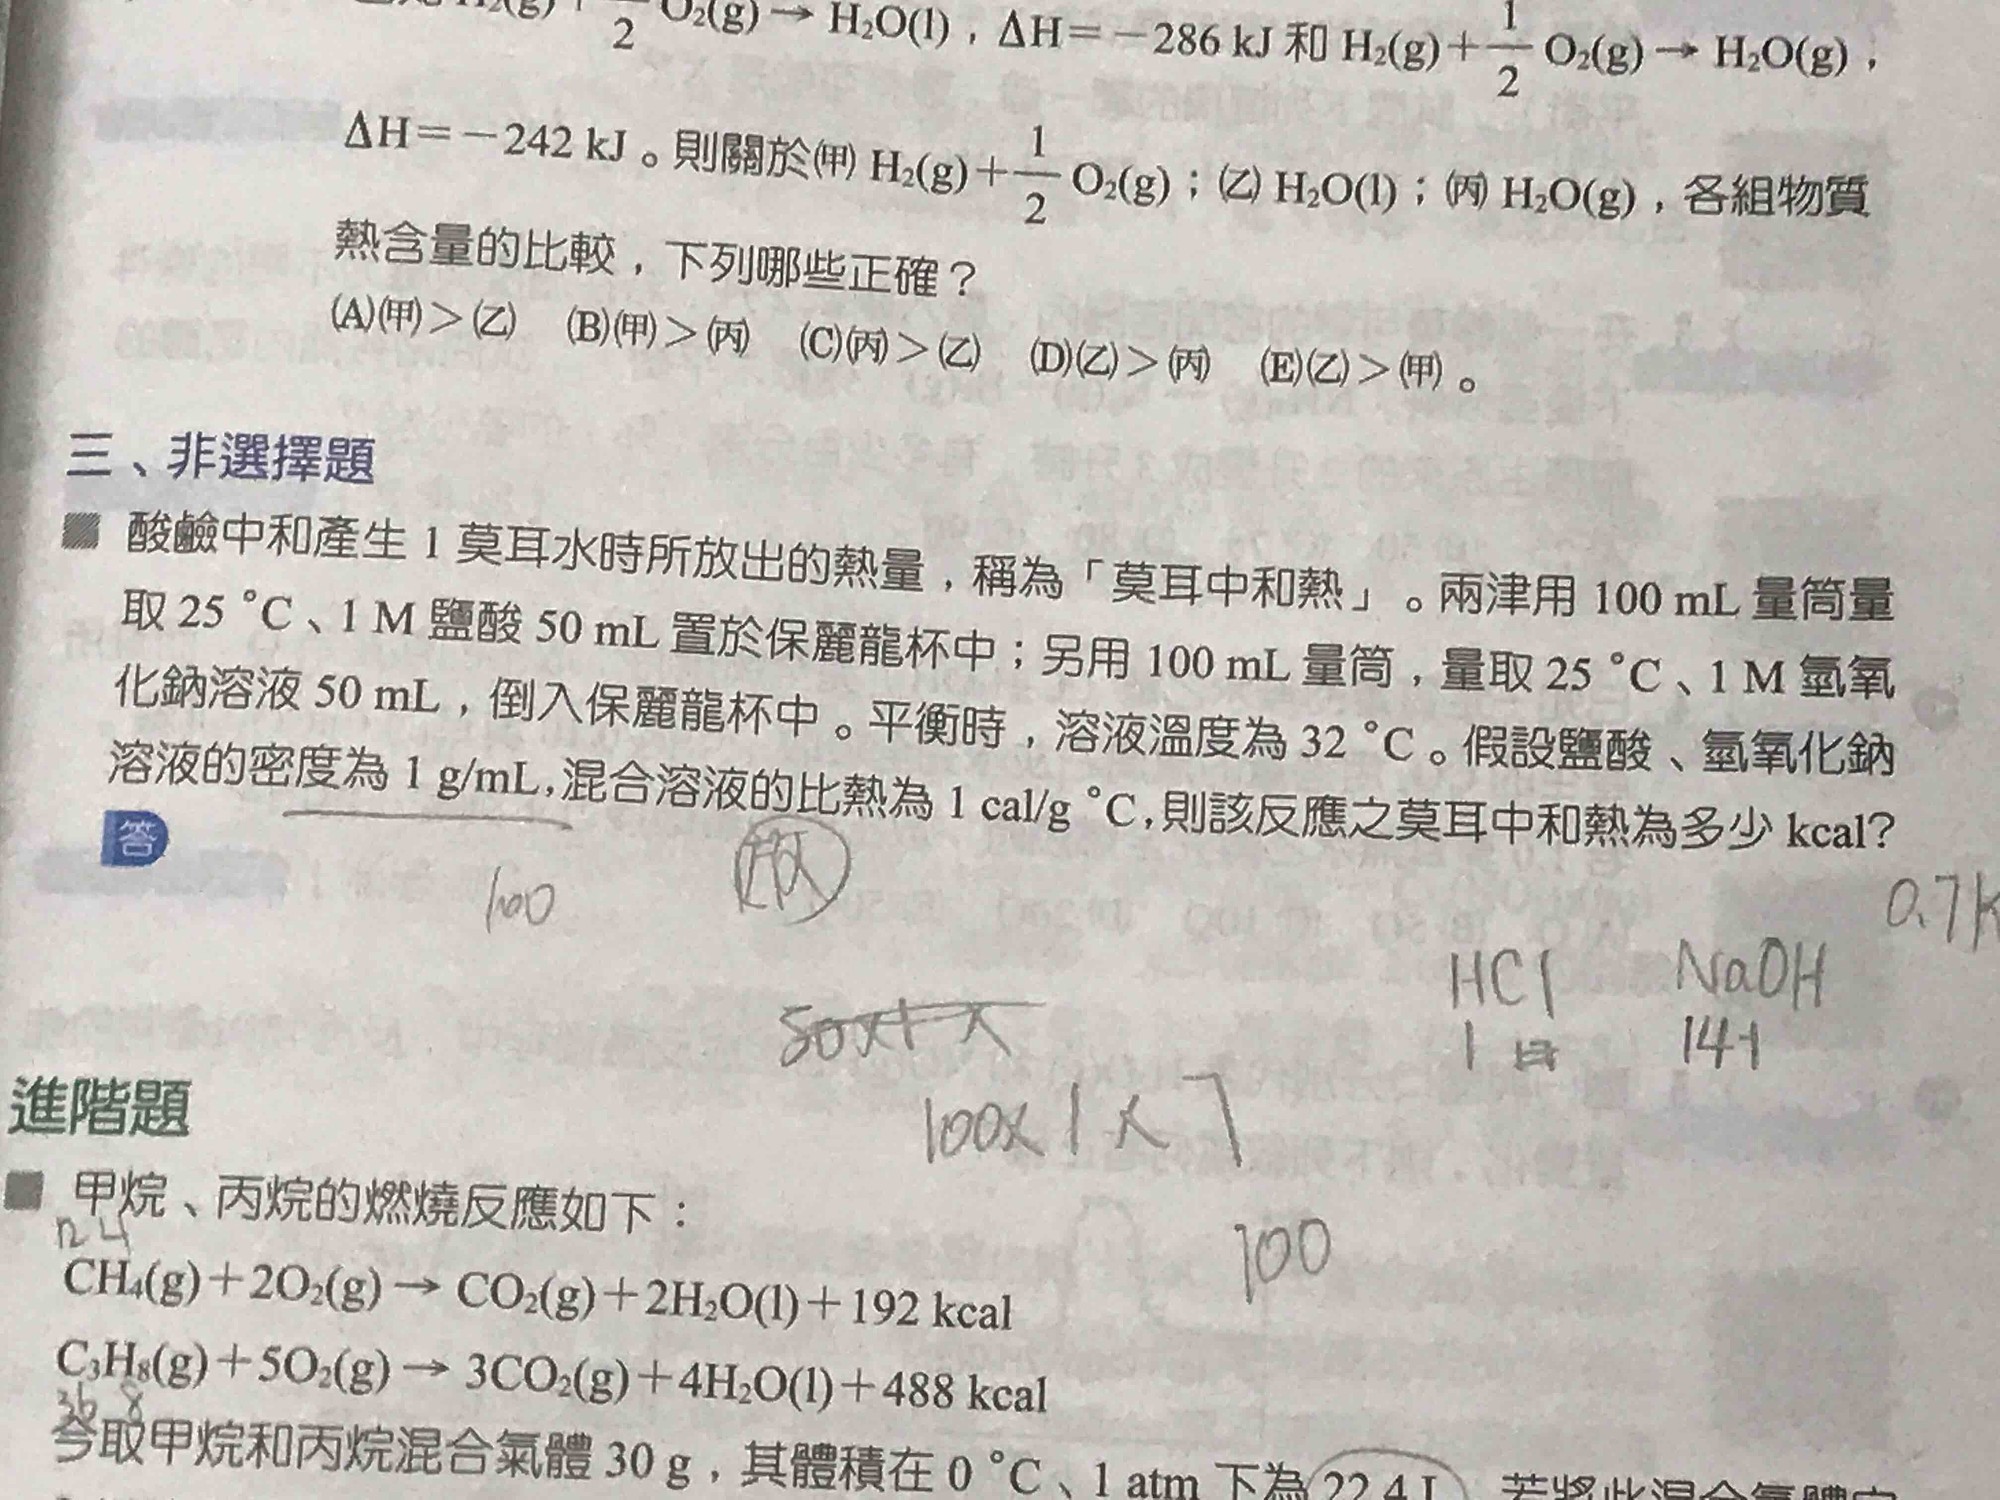 H₂(g)+1/2 O₂(g)→H₂O(l),ΔH=-286 kJ 和 H₂(g)+1/2 O₂(g)→H₂O(g),
ΔH=-242 kJ。則關於(甲) H₂(g)+1/2 O₂(g);(乙) H₂O(l);(丙) H₂O(g),各組物質
熱含量的比較,下列哪些正確?
(A)(甲)>(乙) (B)(甲)>(丙) (C)(丙)>(乙) (D)(乙)>(丙) (E)(乙)>(甲)。
三、非選擇題
酸鹼中和產生 1 莫耳水時所放出的熱量,稱為「莫耳中和熱」。兩津用 100 mL 量筒量
取 25 °C、1 M 鹽酸 50 mL 置於保麗龍杯中;另用 100 mL 量筒,量取 25 °C、1 M 氫氧
化鈉溶液 50 mL,倒入保麗龍杯中。平衡時,溶液溫度為 32 °C。假設鹽酸、氫氧化鈉
溶液的密度為 1 g/mL,混合溶液的比熱為 1 cal/g °C,則該反應之莫耳中和熱為多少 kcal?
答
100
0.7k
HCl NaOH
1
50×1×
100×1×7
100
進階題
甲烷、丙烷的燃燒反應如下:
12 4
CH₄(g)+2O₂(g)→CO₂(g)+2H₂O(l)+192 kcal
C₃H₈(g)+5O₂(g)→3CO₂(g)+4H₂O(l)+488 kcal
36 8
今取甲烷和丙烷混合氣體 30 g,其體積在 0 °C、1 atm 下為 22.4 L,若將此混合氣體